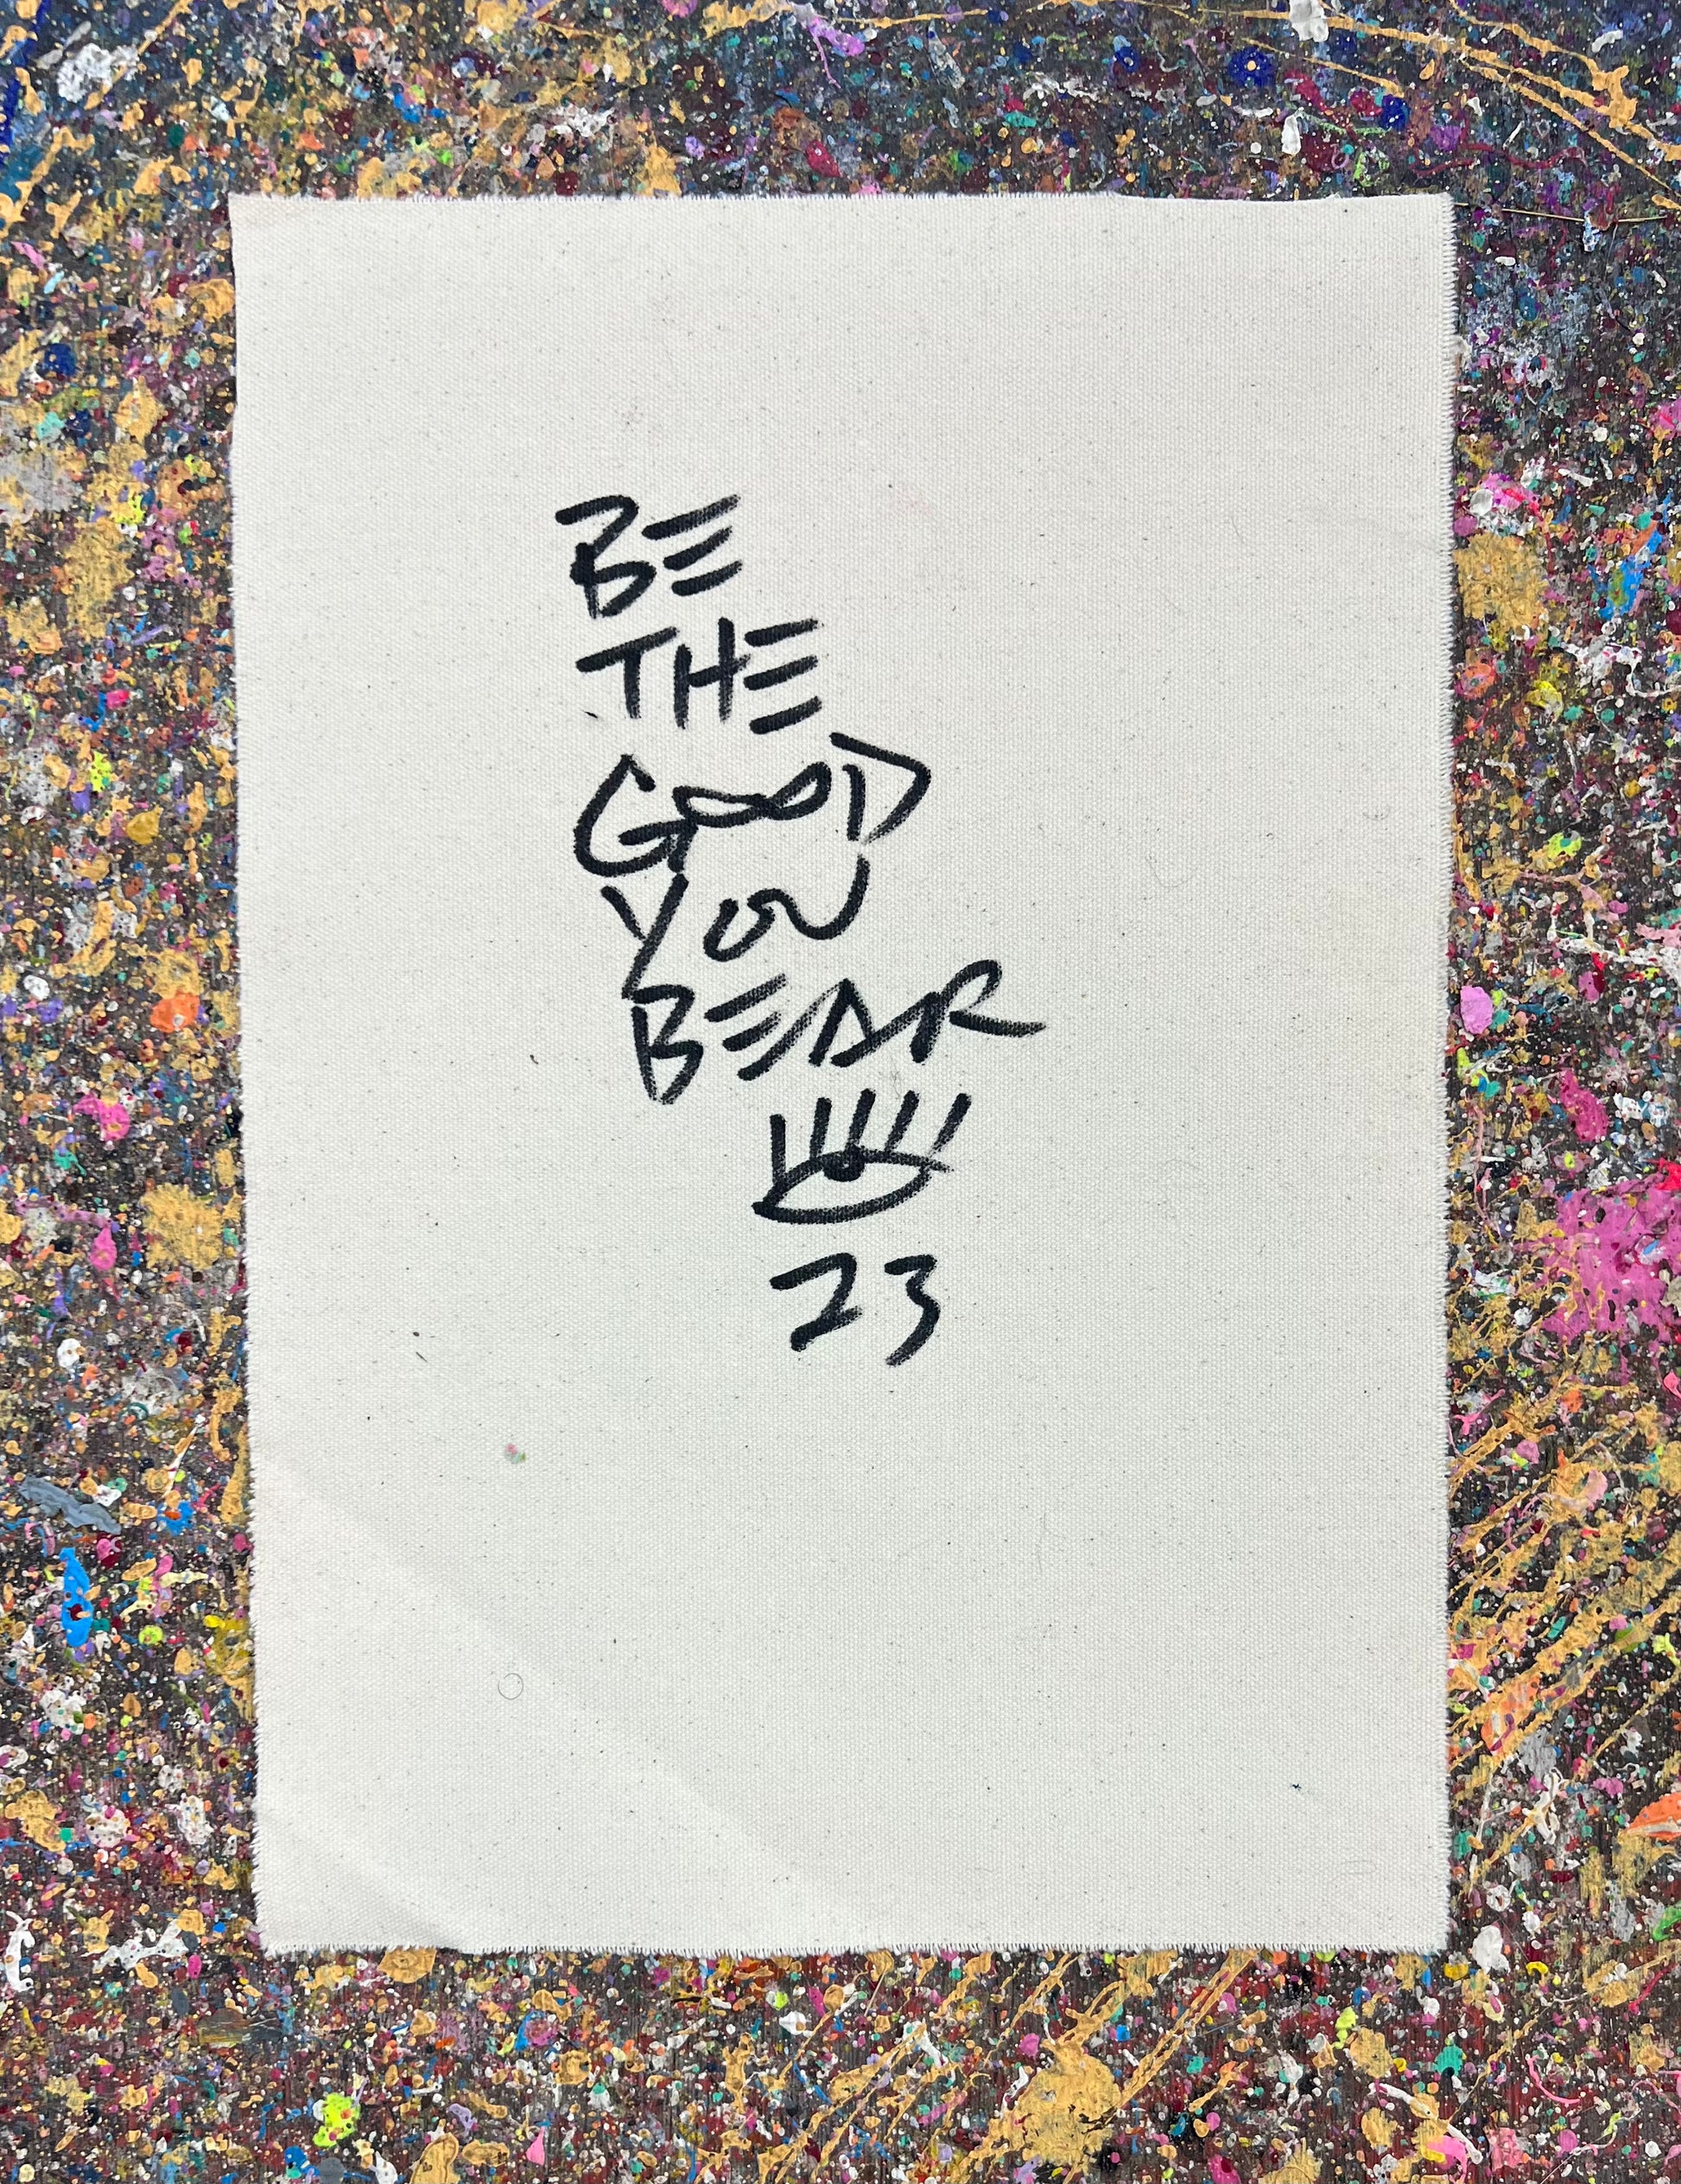 BE
THE
GOOD
YOU
BEAR
23